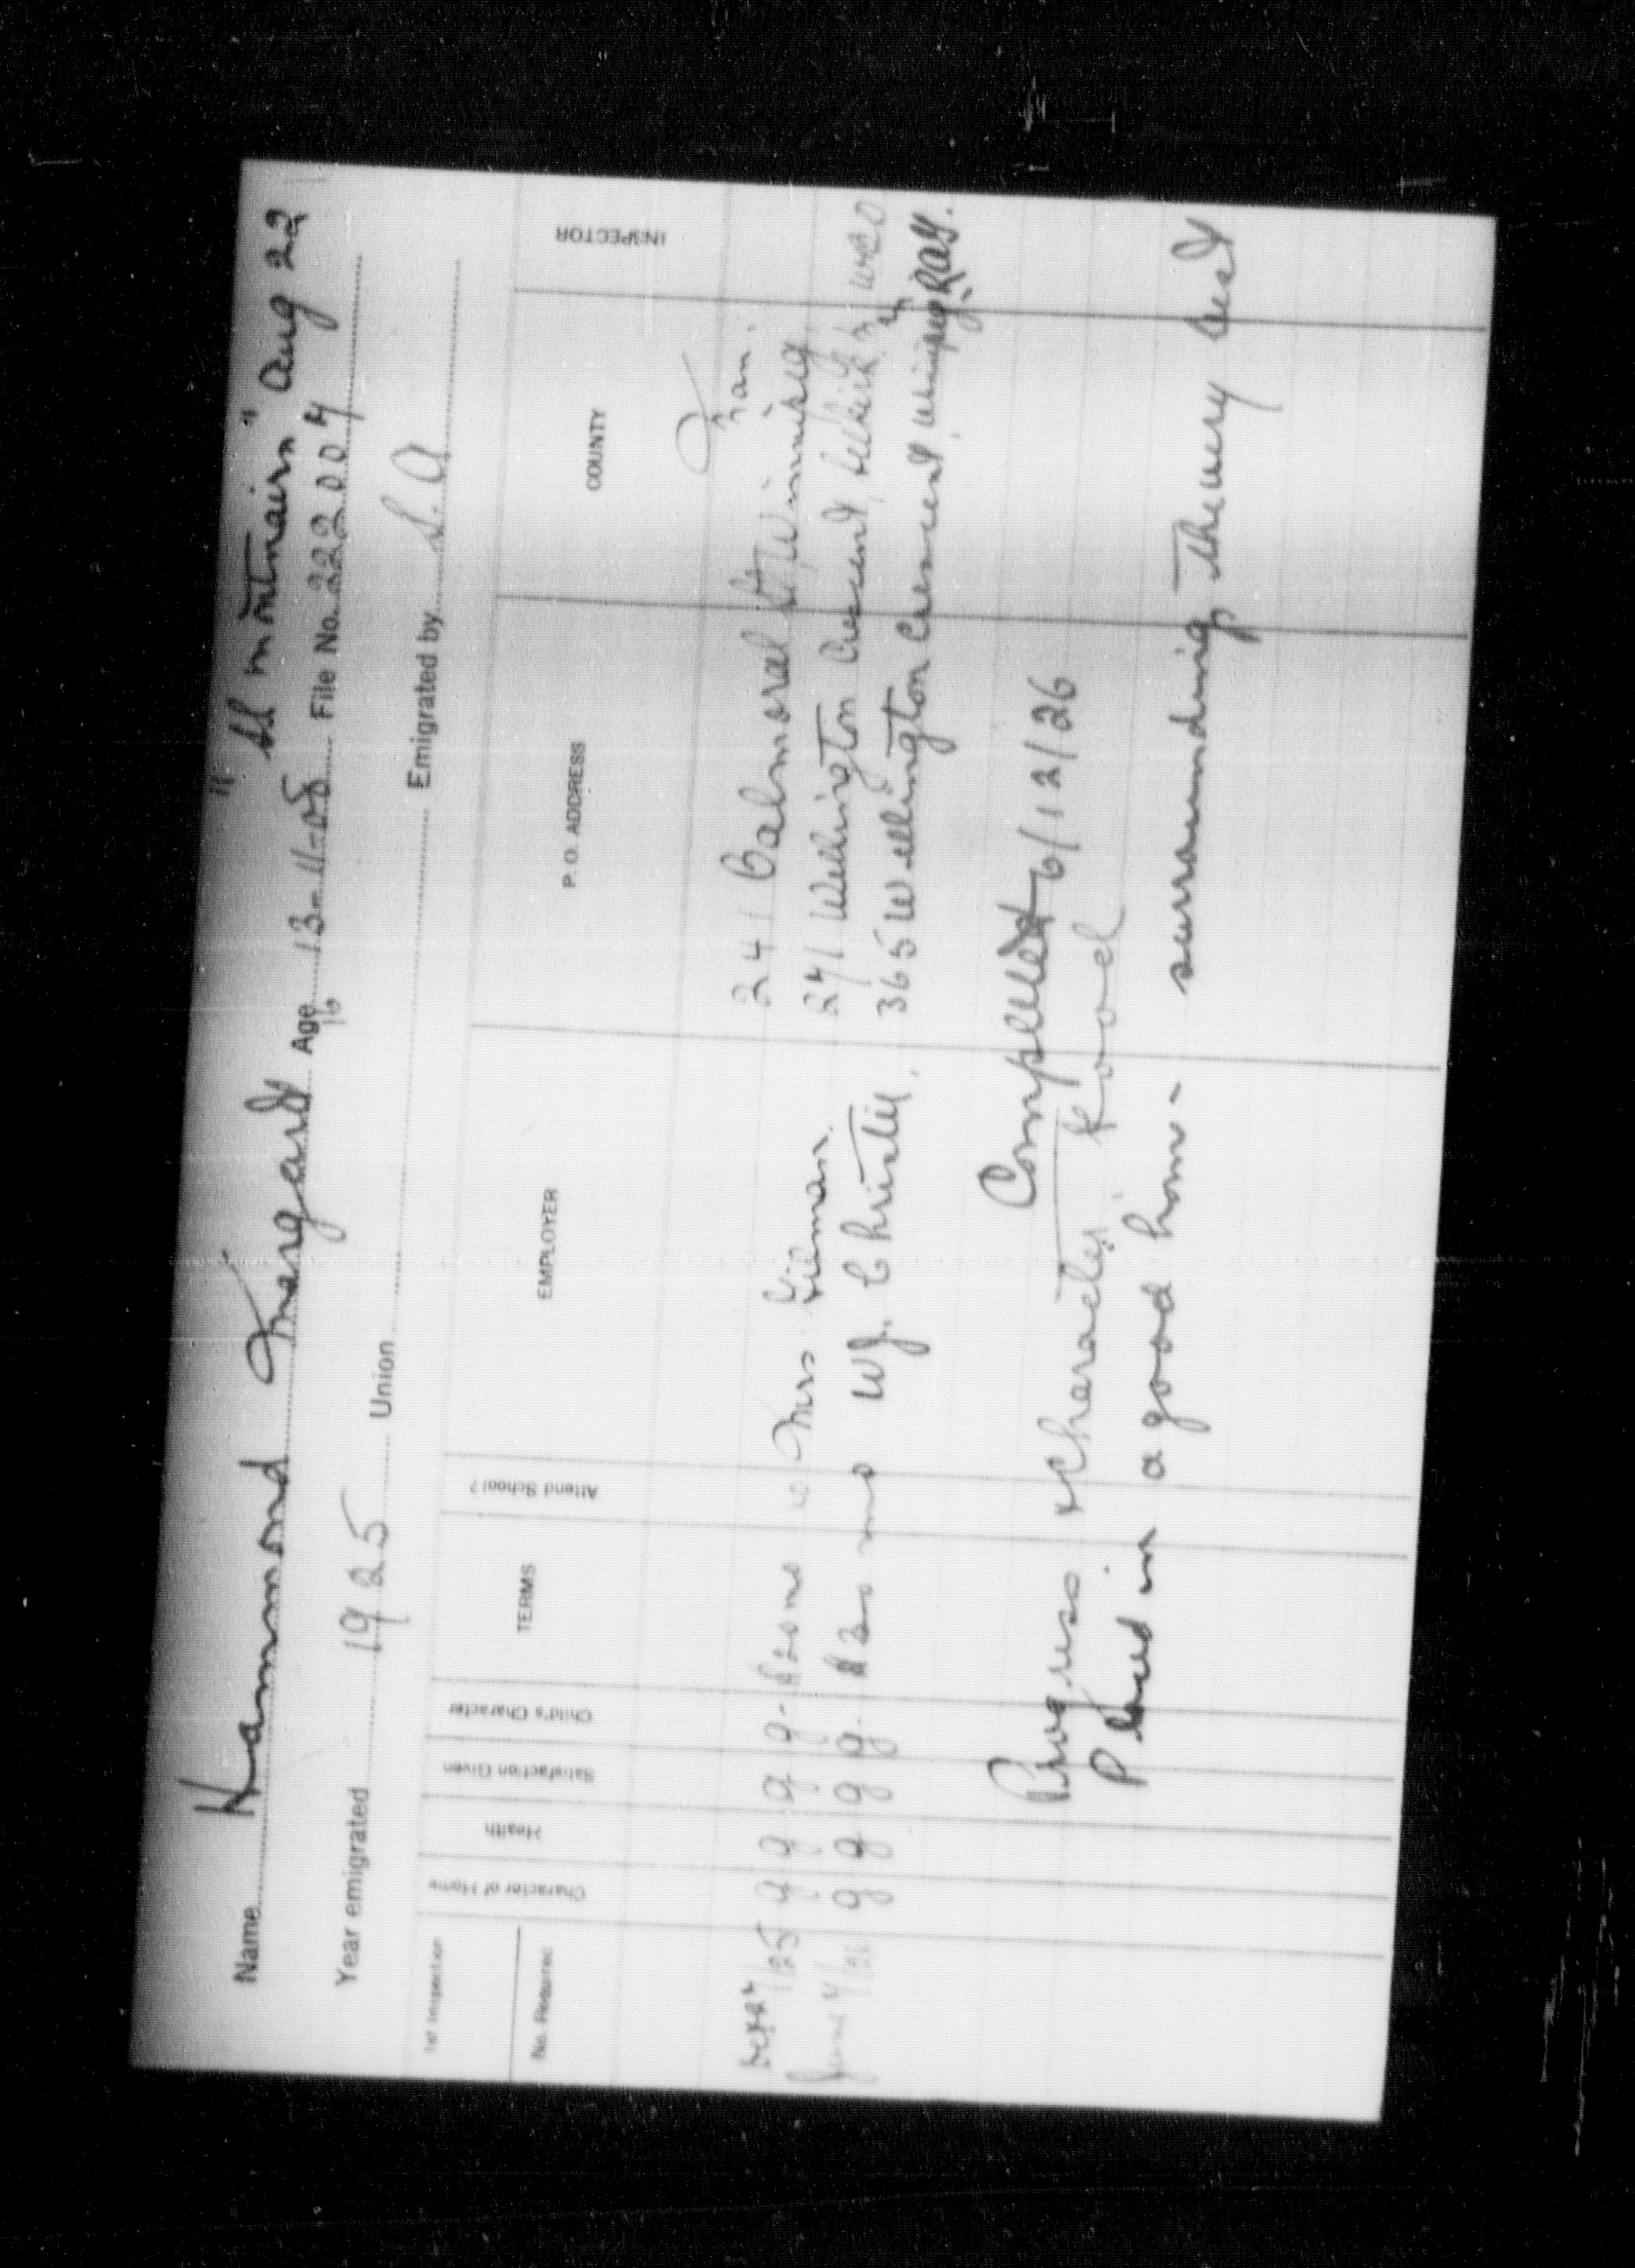 Name Hammond Margaret Age 13-11-08 File No. 222004
16
" Aug 22
Year emigrated 1925 Union Emigrated by S.A
1st Inspection
No. Required
Character of Home
Health
Satisfaction Given
Child's Character
TERMS
Attend School?
EMPLOYER
P. O. ADDRESS
COUNTY
INSPECTOR
Man.
/25 g g g g. mo Mrs Gilman 241 Balmoral St Winnipeg
June g g g g. WJ. Christie, 271 Wellington Crescent
365 Wellington Crescent, Winnipeg
Completed 6/12/26
Progress & Character Good
Placed in a good home - surrounding the very best